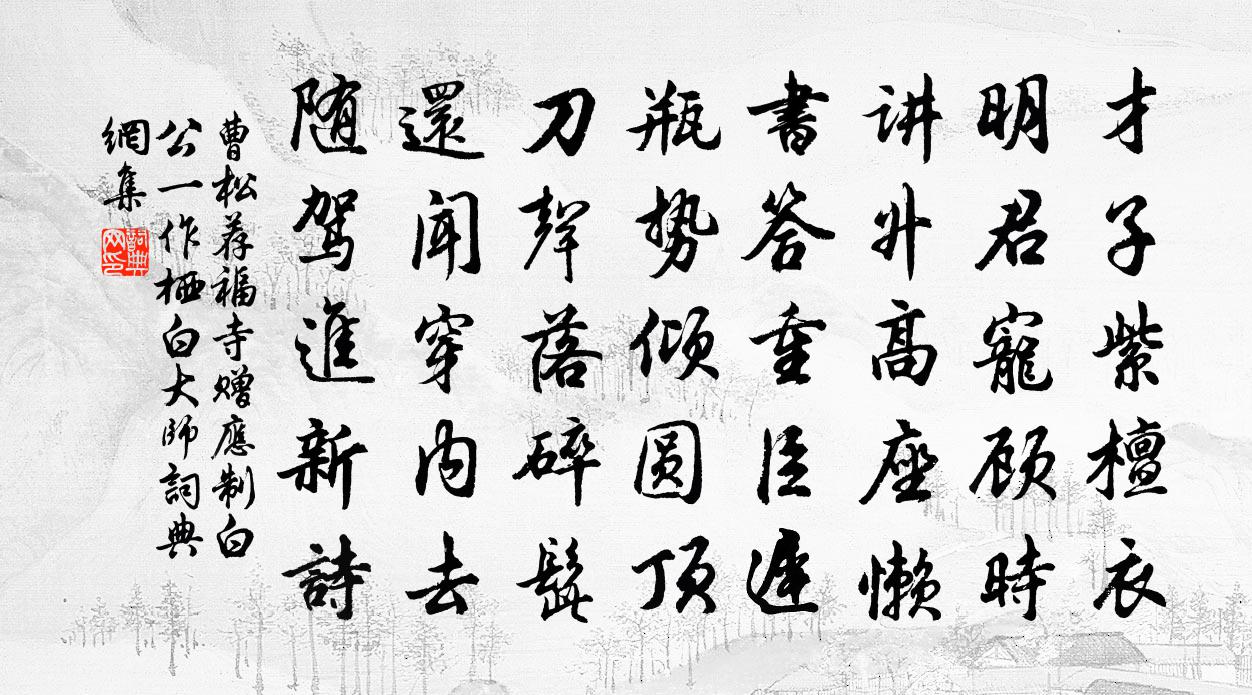 才子紫檀衣
明君寵顾時
讲升高座懒
書答重臣遲
瓶势倾圆顶
刀聲落碎髭
還聞穿内去
随駕進新詩
曹松荐福寺赠應制白
公一作栖白大師詞典
網集
詞典
网印